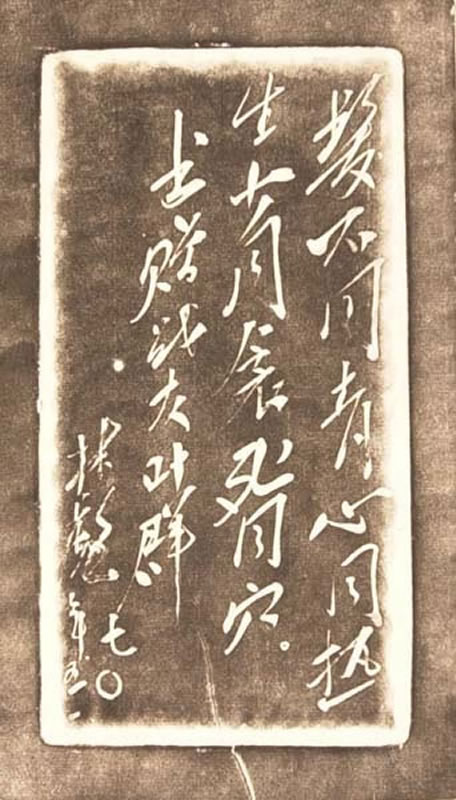 髮不同青心同热
生不同衾死同穴。
书赠战友叶群
林彪
七〇
年五一